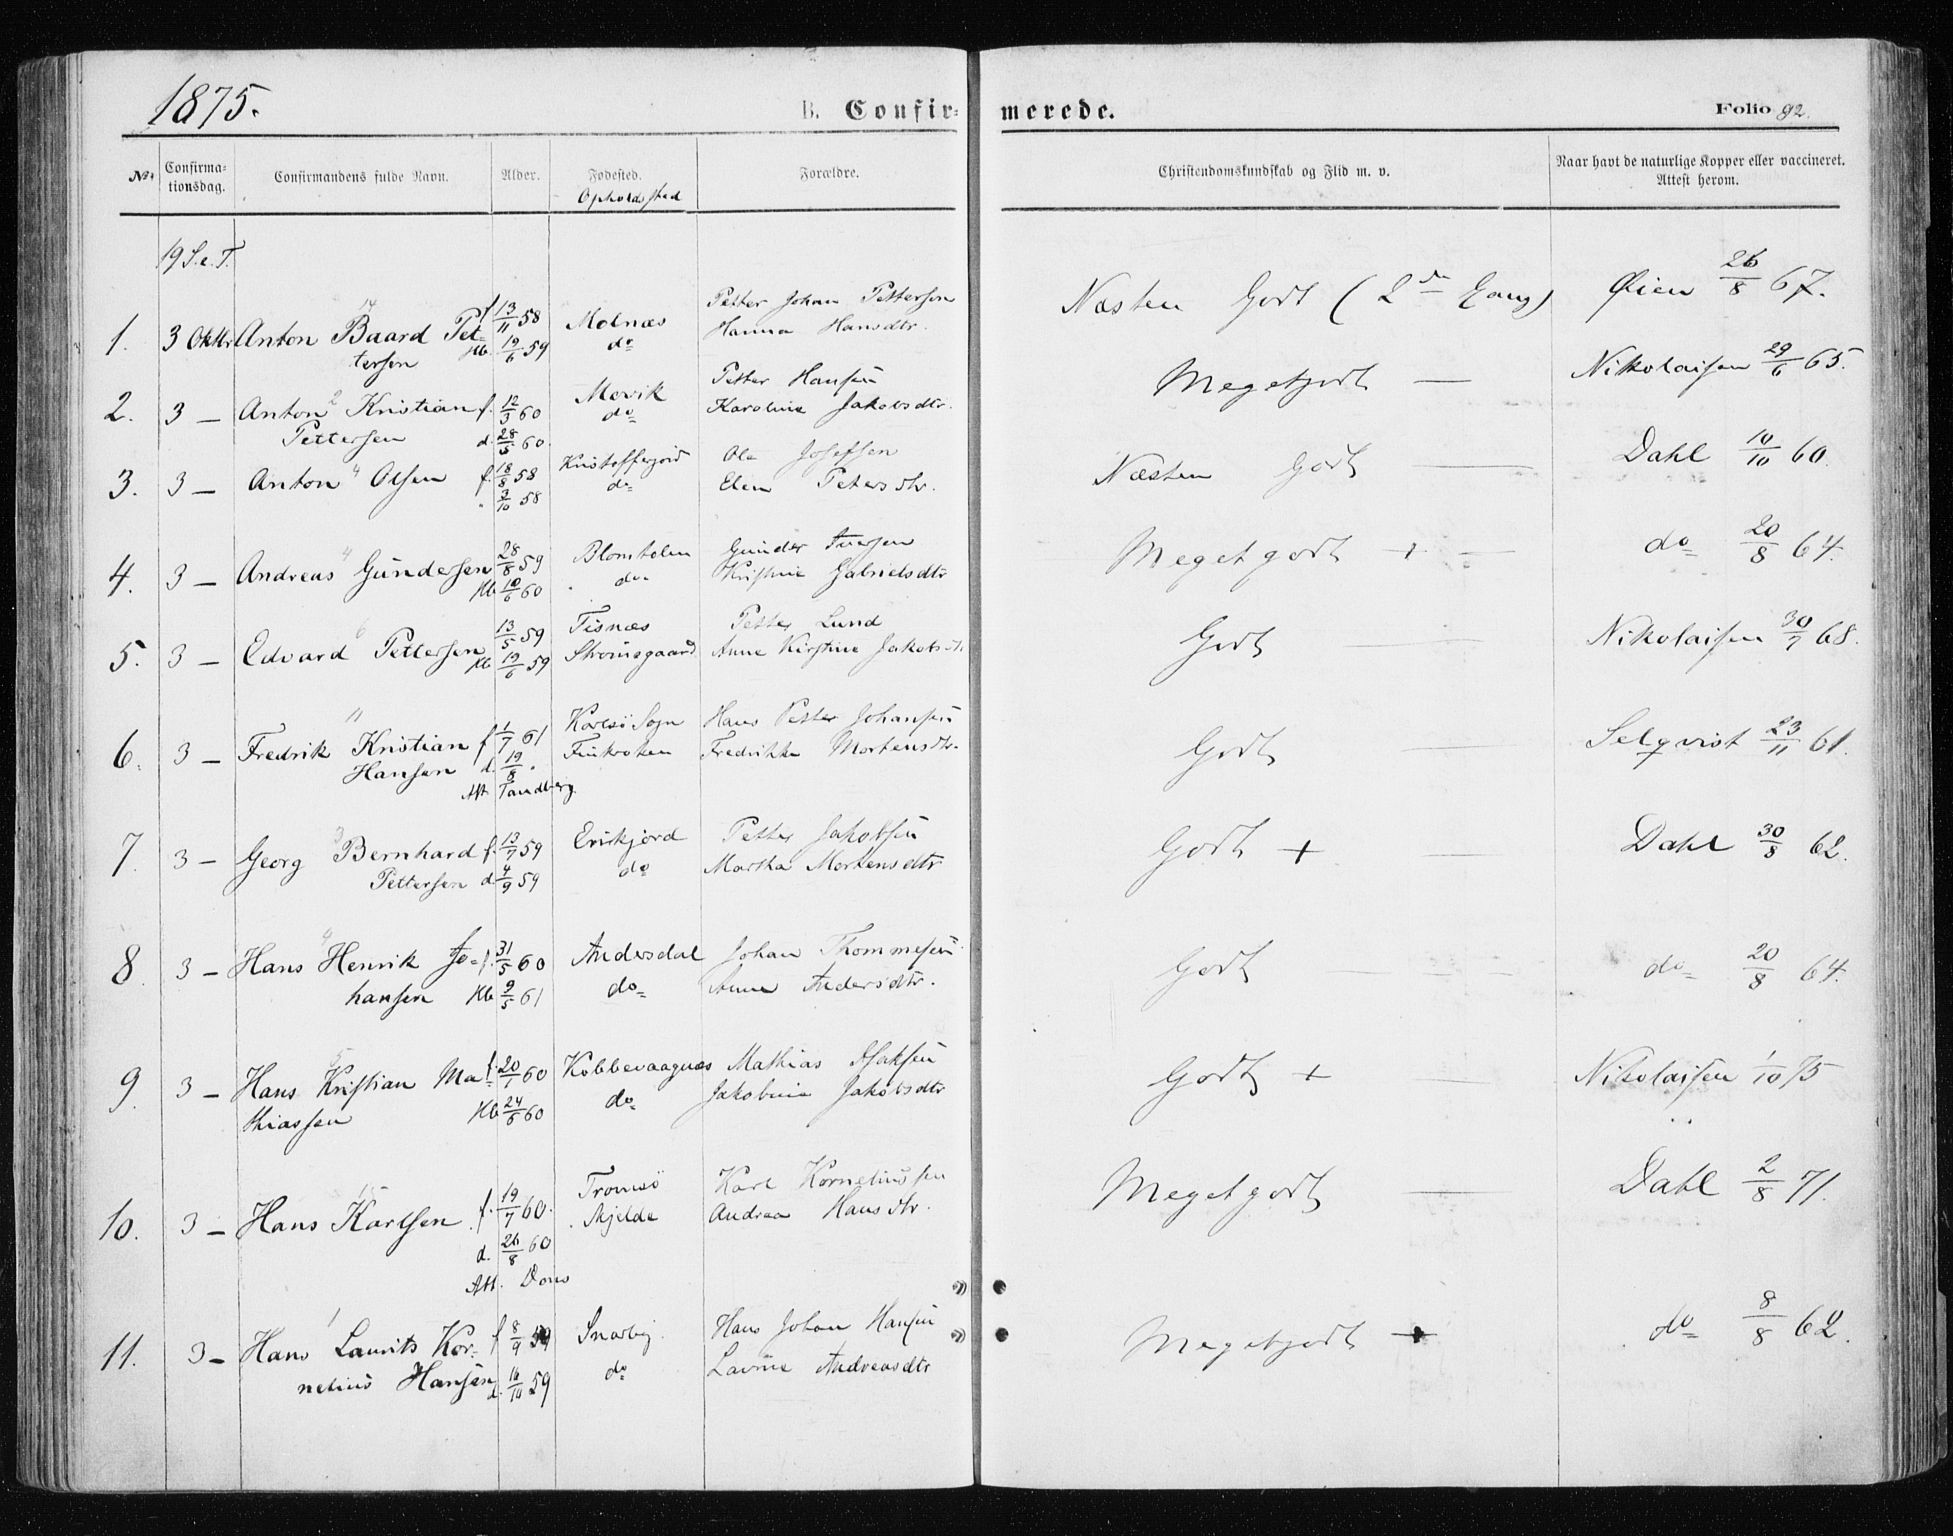 1875.
B. Confir-
merede.
Folio 92.
No.
Confirma-
tionsdag.
Confirmandens fulde Navn.
Alder.
Fødested.
Opholdssted
Forældre.
Christendomskundskab og Flid m. v.
Naar havt de naturlige Kopper eller vaccineret.
Attest herom.
19 S. e. T.
1. 3 Oktbr Anton Baard Pet- f 13/11 58 Molnæs Petter Johan Pettersen Næsten Godt (2de Gang) Øien 26/8 67.
tersen Hb. 19/6 59 do Hanna Hansdtr.
2. 3 — Anton Kristian f. 12/3 60 Movik Petter Hansen Megetgodt — Nikolaisen 29/6 65.
Pettersen d. 28/5 60. do Karoline Jakobsdtr.
3. 3 — Anton Olsen f. 18/8 58 Kristofferjord Ole Josefsen Næsten Godt — Dahl 10/10 60.
" 3/10 58 do Elen Petersdtr.
4. 3 — Andreas Gundersen 28/8 59 Gunder Meget godt + — do 20/8 64.
Hb 10/6 60 do Kristine Gabrielsdtr
5. 3 — Edvard Pettersen 13/5 59 Tisnæs Petter Lund Godt — Nikolaisen 30/7 68.
Hb 19/6 59 Strømsgaard Anne Kirstine Jakobsdt.
6. 3 — Fredrik Kristian f 1/7 61 Karlsö Sogn Hans Petter Johansen Godt — Selqvist 23/11 61.
Hansen d. 19/8 " Finkroken Fredrikke Mortensdtr.
Att Tandberg.
7. 3 — Georg Bernhard f. 13/7 59 Erikjord Petter Jakobsen Godt + — Dahl 30/8 62.
Pettersen d. 4/9 59 do Martha Mortensdtr
8. 3 — Hans Henrik Jo- f. 31/5 60 Andersdal Johan Thommesen Godt — do 20/8 64.
hansen Hb 9/5 61 do Anne Andersdtr.
9. 3 — Hans Kristian Ma- f. 20/1 60 Kobbevaagnæs Mathias Isaksen Godt + — Nikolaisen 1/10 75
thiassen Hb 24/6 60 do Jakobine Jakobsdtr
10. 3 — Hans Karlsen f. 19/7 60. Tromsö Karl Korneliussen Megetgodt — Dahl 2/8 71.
d. 26/8 60 Skjelde Andrea Hansdtr.
Att. Dons
11. 3 — Hans Laurits Kor- f 8/9 59 Snarbÿ Hans Johan Hansen Megetgodt + do 8/8 62.
nelius Hansen d. 16/10 59 do Lavine Andreasdtr